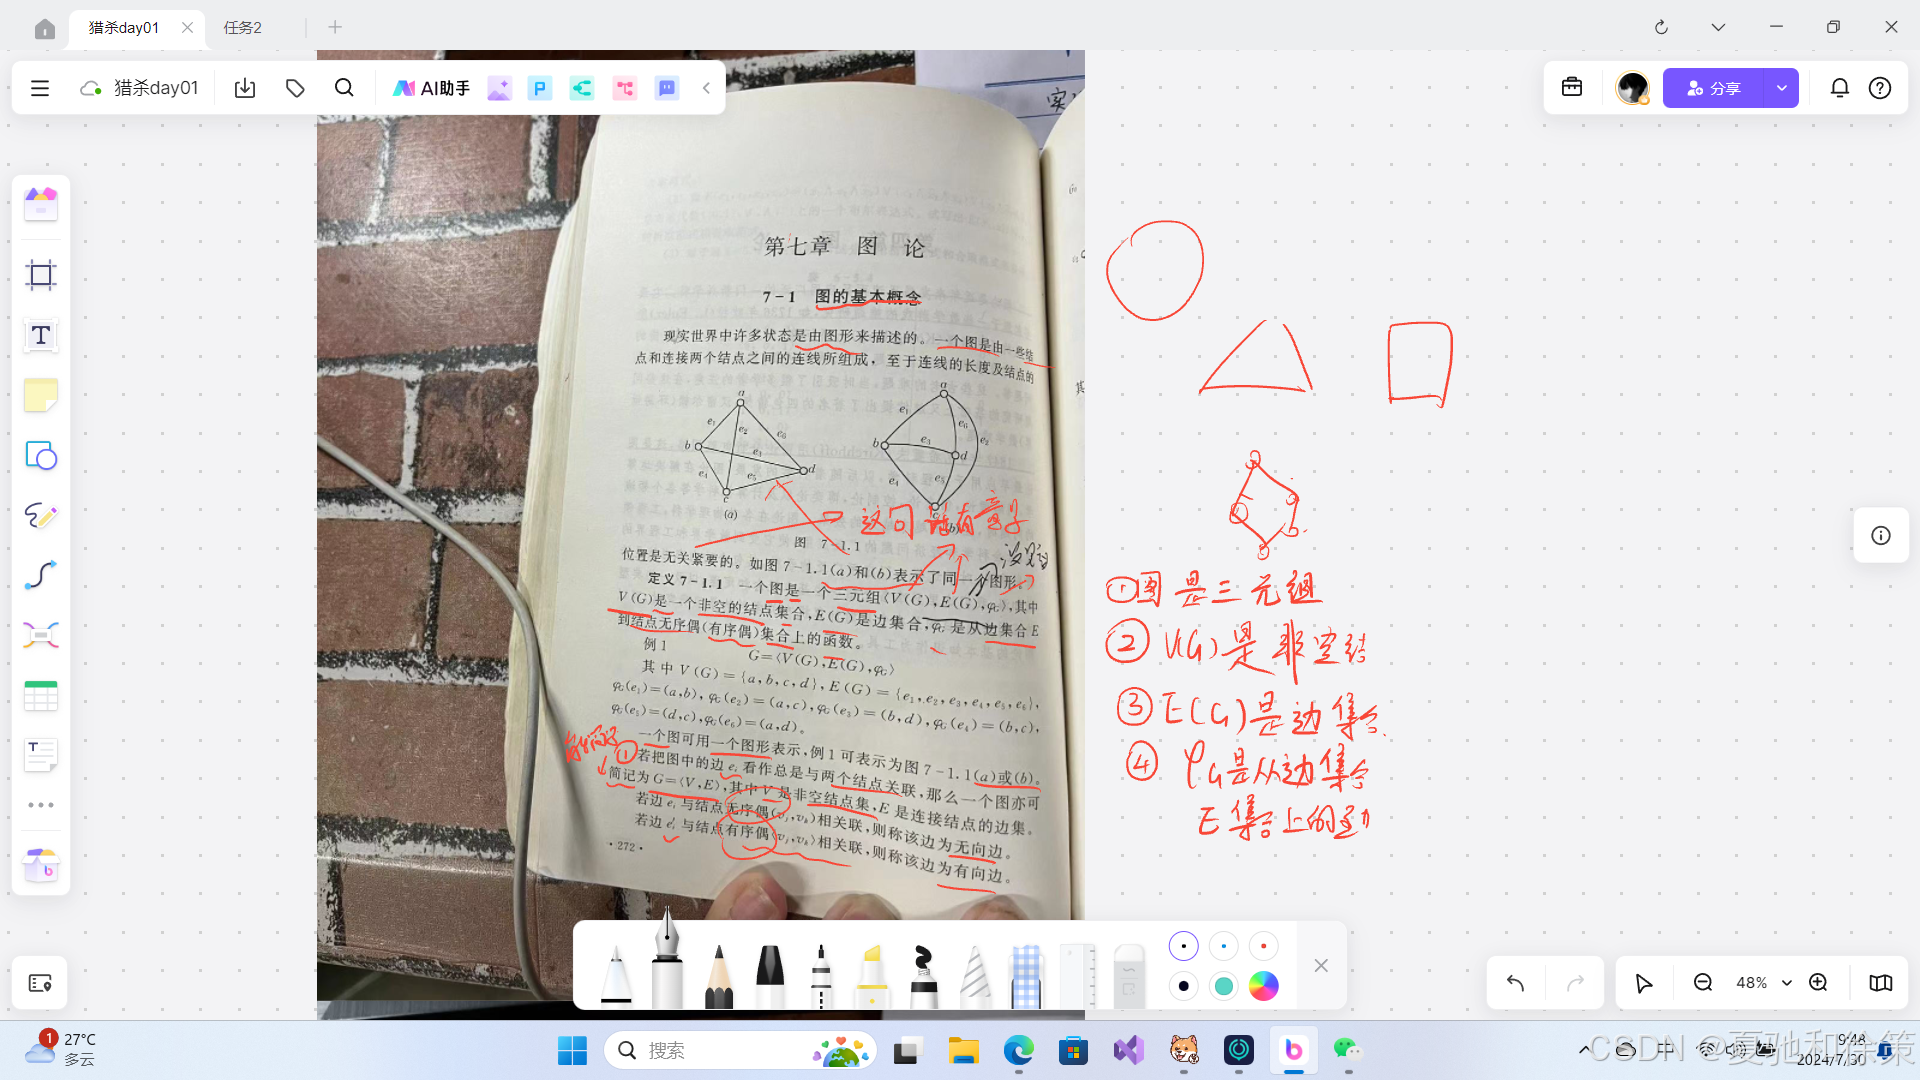 猎杀day01
任务2
猎杀day01
AI助手
分享
实
第七章 图 论
7-1 图的基本概念
现实世界中许多状态是由图形来描述的。一个图是由一些结
点和连接两个结点之间的连线所组成，至于连线的长度及结点的
a
e1
e2
e6
b
e3
e4
e5
d
c
(a)
a
e1
e6
e2
b
e3
d
e4
e5
c
图 7-1.1
这句
位置是无关紧要的。如图7-1.1(a)和(b)表示了同一个图形。
定义7-1.1 一个图是一个三元组〈V(G),E(G),φG〉,其中
V(G)是一个非空的结点集合,E(G)是边集合,φG是从边集合E
到结点无序偶(有序偶)集合上的函数。
例1
G=〈V(G),E(G),φG〉
其中V(G)={a,b,c,d},E(G)={e1,e2,e3,e4,e5,e6},
φG(e1)=(a,b),φG(e2)=(a,c),φG(e3)=(b,d),φG(e4)=(b,c),
φG(e5)=(d,c),φG(e6)=(a,d)。
一个图可用一个图形表示,例1可表示为图7-1.1(a)或(b)。
若把图中的边ei看作总是与两个结点关联,那么一个图亦可
简记为G=〈V,E〉,其中V是非空结点集,E是连接结点的边集。
若边ei与结点无序偶(vj,vk)相关联,则称该边为无向边。
若边ei与结点有序偶〈vj,vk〉相关联,则称该边为有向边。
·272·
①图是三元组
②V(G)是非空结
③E(G)是边集合.
④φG是从边集合
E集合上的
48%
1
27°C
多云
搜索
9:48
2024/7/30
CSDN @夏驰和徐策